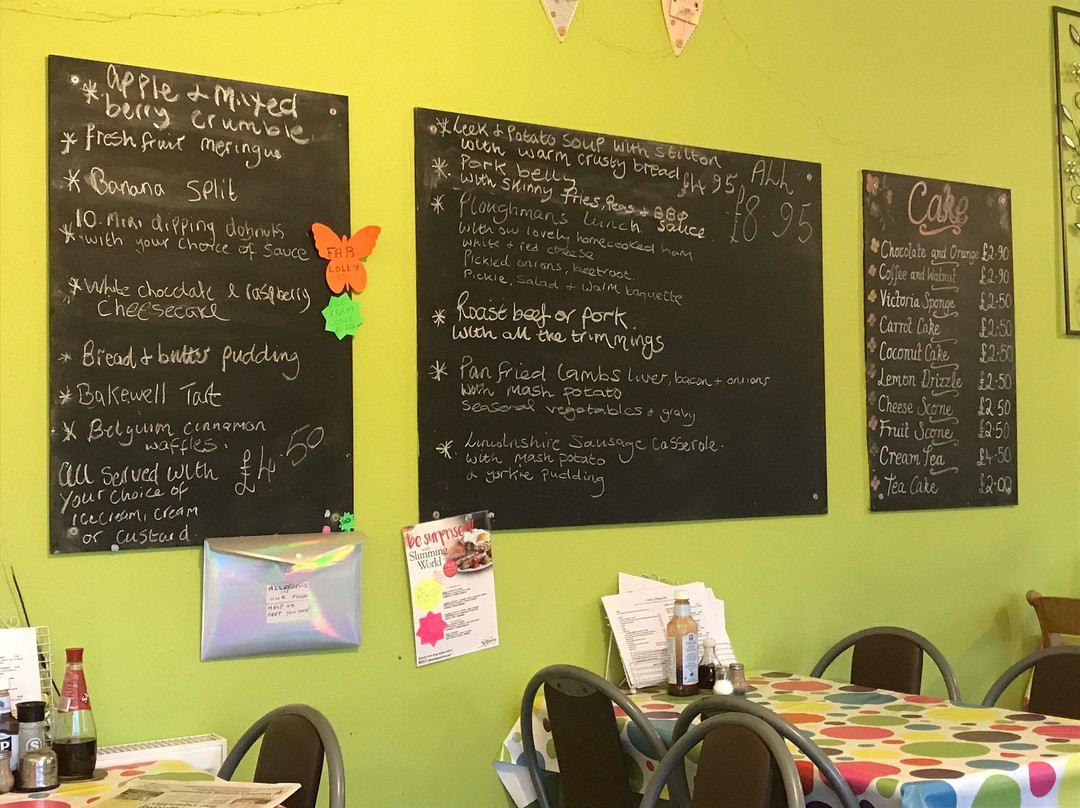 * Apple & Mixed
berry crumble
* fresh fruit meringue
* Banana Split
* 10 Mini dipping dohnuts
with your choice of sauce
* White chocolate & raspberry
cheesecake
* Bread & butter pudding
* Bakewell Tart
* Belguium cinnamon
waffles.
all served with £4.50
your choice of
icecream, cream
or custard
FAB
LOLLY
* Leek & Potato Soup with Stilton
with warm crusty bread £4.95
* Pork belly
with skinny fries, Peas & BBQ
sauce.
ALL
£8.95
* Ploughmans Lunch
with our lovely homecooked ham
white & red cheese
Pickled onions, beetroot.
Pickle, Salad & warm baguette
* Roast beef or pork
with all the trimmings
* Pan fried lambs liver, bacon & onions
with mash potato
Seasonal vegetables & gravy
* Lincolnshire Sausage Casserole.
with mash potato
& yorkie pudding
Cake
Chocolate and Orange £2.90
Coffee and Walnut £2.90
Victoria Sponge £2.50
Carrot Cake £2.50
Coconut Cake £2.50
Lemon Drizzle £2.50
Cheese Scone £2.50
Fruit Scone £2.50
Cream Tea £4.50
Tea Cake £2.00
ALLERGENS
IN
OUR FOOD
HELP US
KEEP YOU SAFE
be surprised
with
Slimming
World